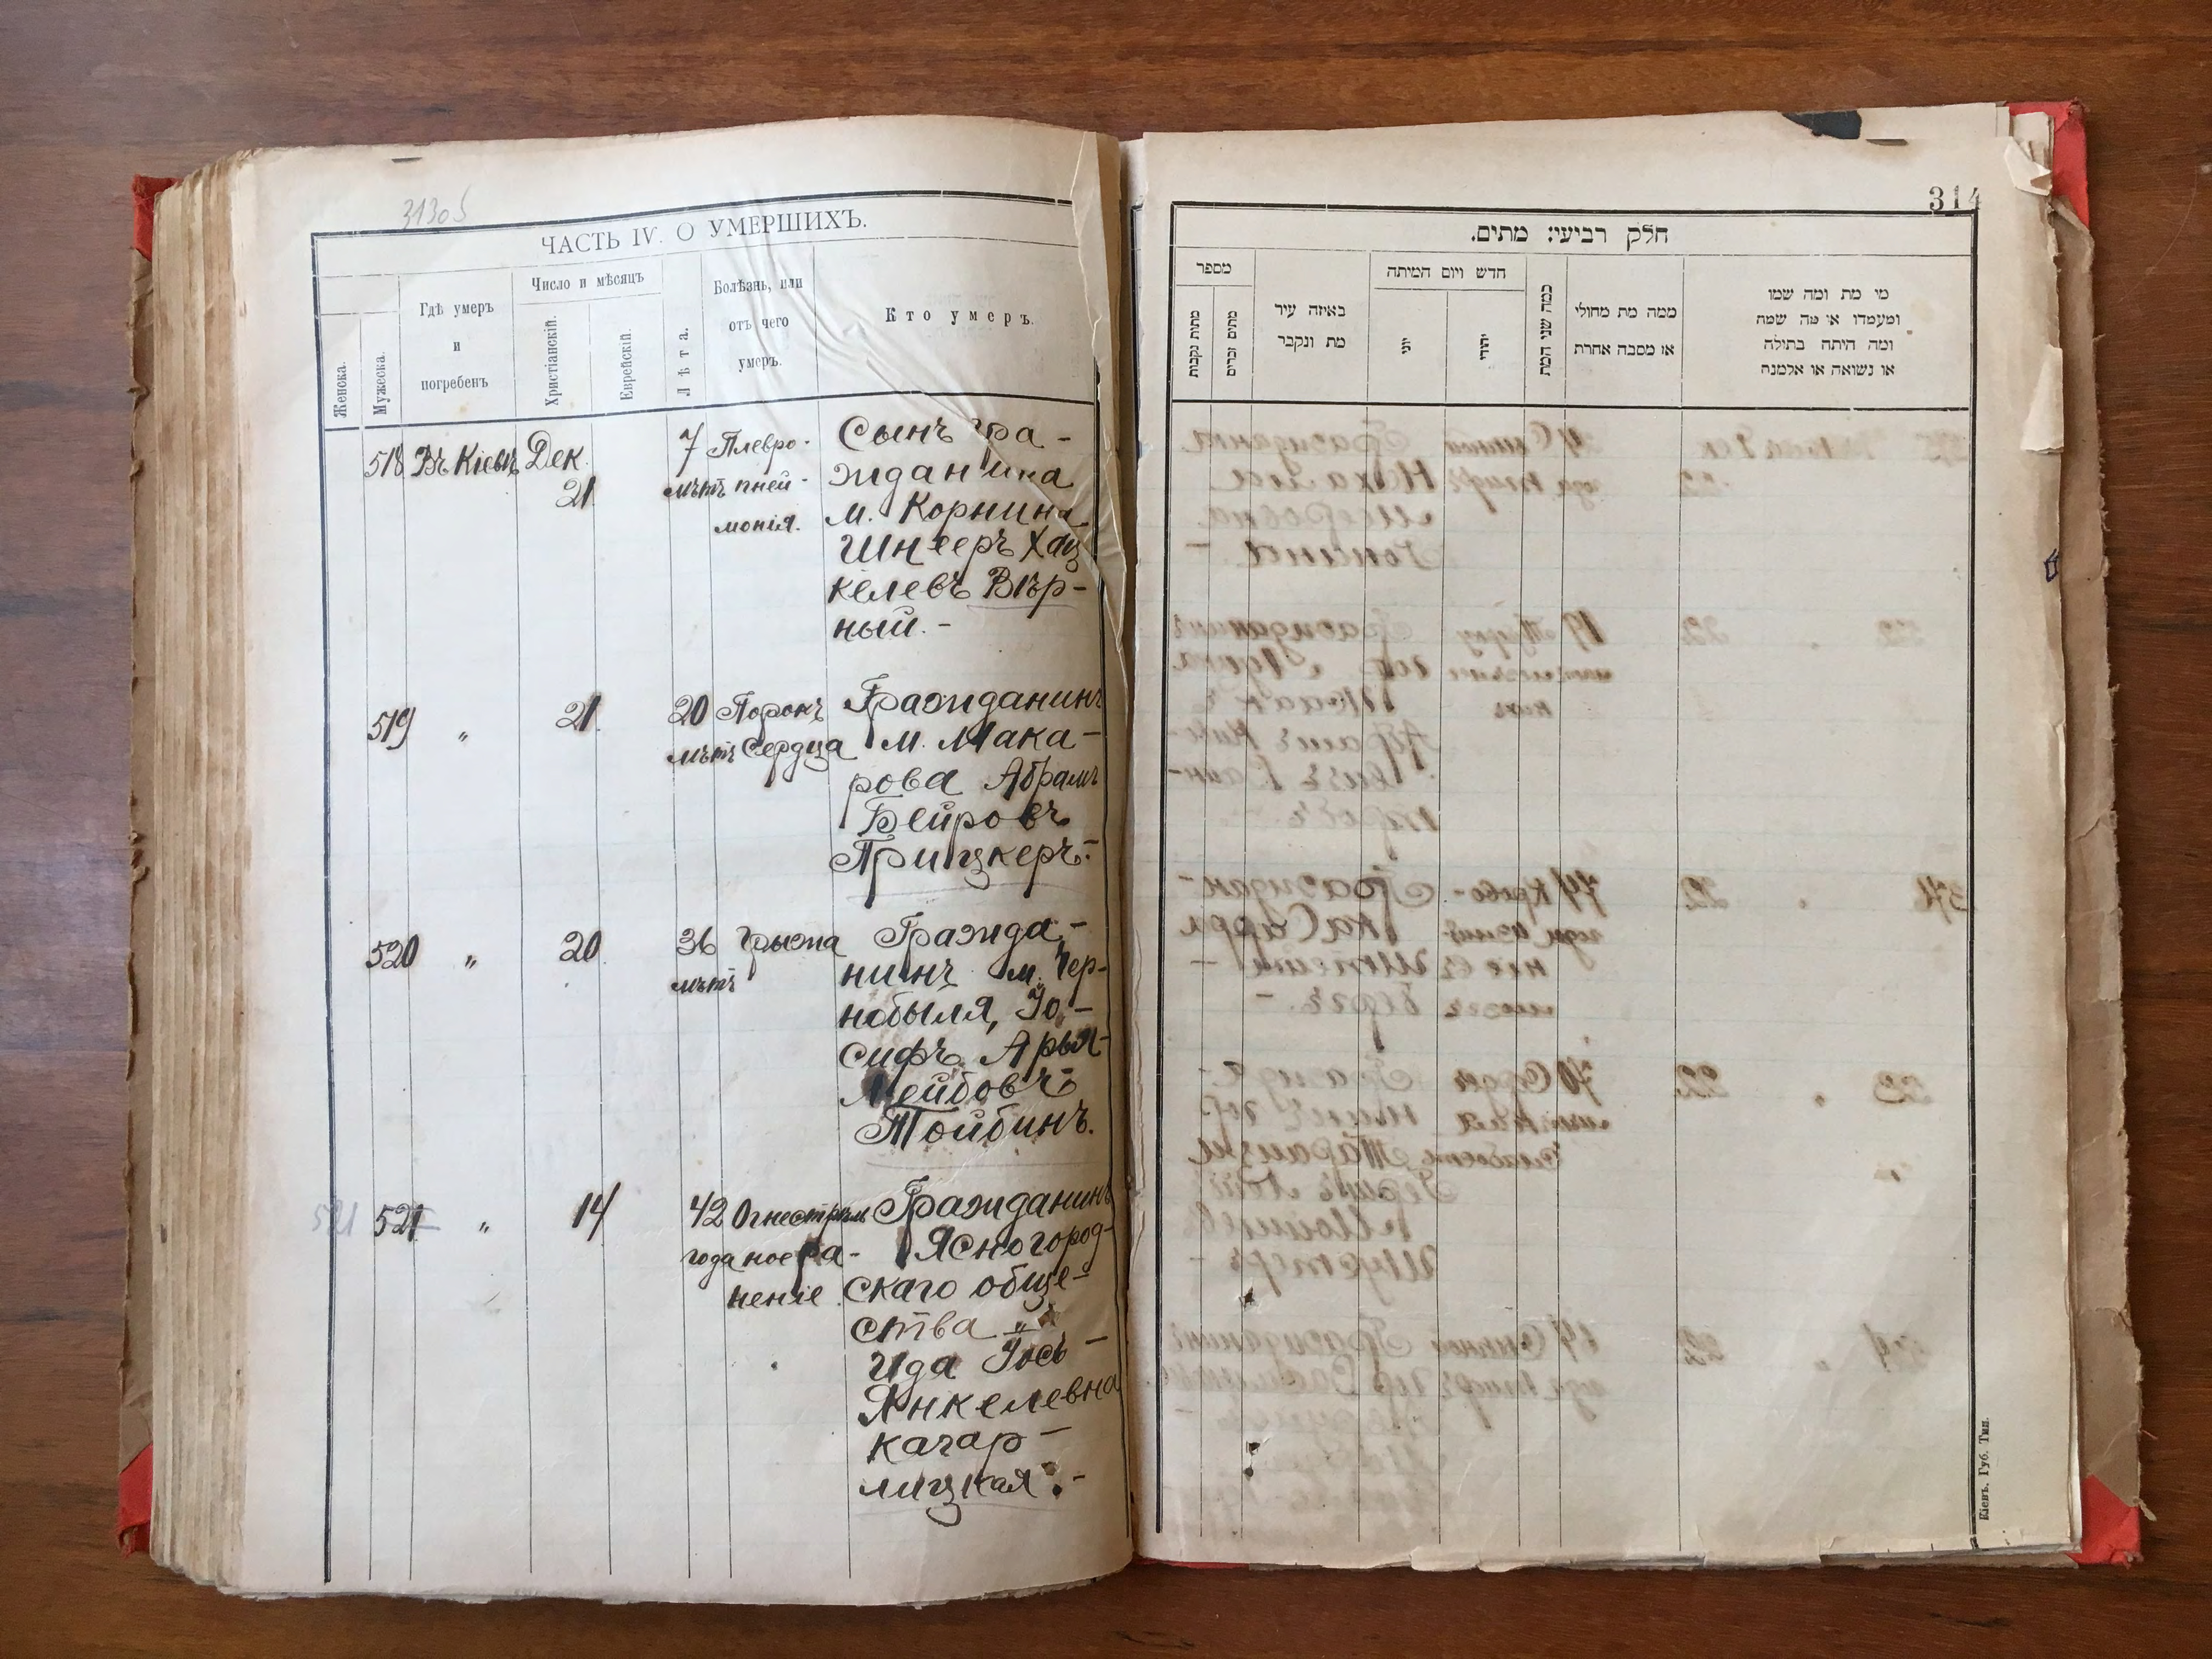 313об
ЧАСТЬ IV. О УМЕРШИХЪ.
Женска.
Мужеска.
Гдѣ умеръ
и
погребенъ
Число и мѣсяцъ
Христіанскій.
Еврейскій.
Лѣта.
Болѣзнь, или
отъ чего
умеръ.
Кто умеръ.
518 Въ Кіевѣ Дек. 7 Плевро- Сынъ гра-
21 лѣтъ пней- жданина
монія. м. Корнина
Шнееръ Хац
келевъ Вѣр-
ный.-
519 „ 21 20 Порокъ Гражданинъ
лѣтъ сердца м. Мака-
рова Абрамъ
Бейровъ
Прицкеръ.-
520 „ 20 36 Грыжа Гражда-
лѣтъ нинъ м. Чер-
нобыля, Іо-
сифъ Арья-
Лейбовъ
Тойбинъ.
521 521 „ 14 42 Огнестрѣль Гражданинъ
года ное ра- Ясногород-
неніе скаго обще-
ства
Ида Іось-
Янкелевна
Кагар-
лицкая.-
314
חלק רביעי: מתים.
מספר
מתות נקבות
מתים זכרים
באיזה עיר
מת ונקבר
חדש ויום המיתה
יוני
יהודי
כמה שני המת
ממה מת מחולי
או מסבה אחרת
מי מת ומה שמו
ומעמדו או מה שמה
ומה היתה בתולה
או נשואה או אלמנה
Кіевъ. Губ. Тип.